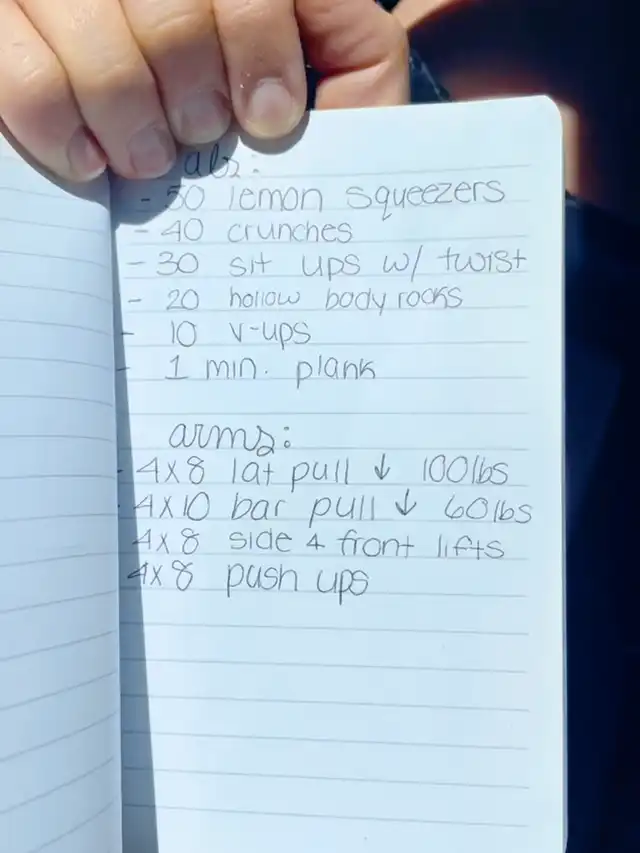 abs:
- 50 lemon squeezers
- 40 crunches
- 30 sit ups w/ twist
- 20 hollow body rocks
- 10 v-ups
- 1 min. plank
arms:
- 4x8 lat pull ↓ 100lbs
- 4x10 bar pull ↓ 60lbs
4x8 side & front lifts
4x8 push ups